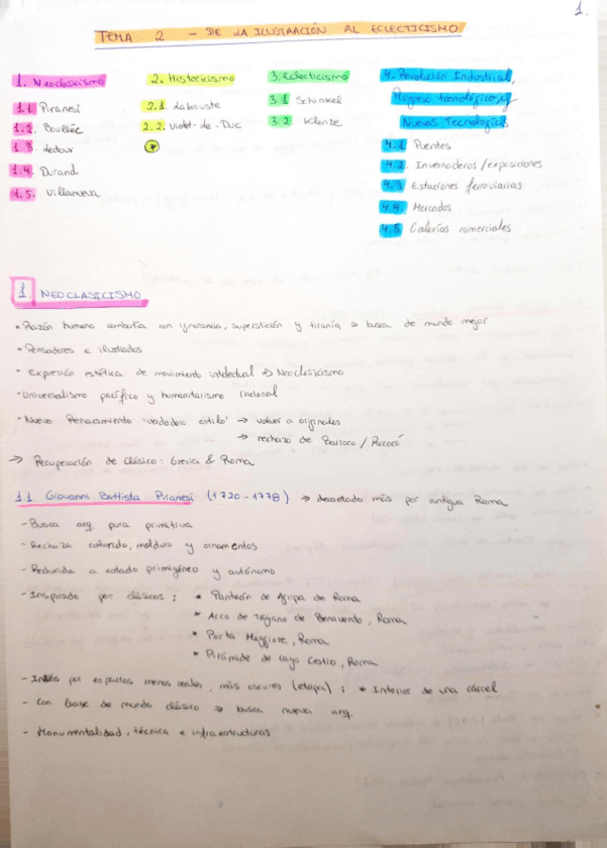 1.
TEMA 2 - DE LA ILUSTRACIÓN AL ECLECTICISMO
1. Neoclasicismo
1.1 Piranesi
1.2. Boullée
1.3. Ledoux
1.4. Durand
1.5. Villanueva
2. Historicismo
2.1 Labrouste
2.2. Violet-de-Duc
3. Eclecticismo
3.1 Schinkel
3.2 Klenze
4. Revolución Industrial,
Progreso tecnológico y
Nuevas Tecnologías
4.1 Puentes
4.2. Invernaderos / exposiciones
4.3 Estaciones ferroviarias
4.4. Mercados
4.5 Galerías comerciales
1 NEOCLASICISMO
• Razón humana combatía con ignorancia, superstición y tiranía → busca de mundo mejor
• Pensadores e ilustrados
• Expresión estética de movimiento intelectual → Neoclasicismo
• Universalismo pacífico y humanitarismo racional
• Nuevo Renacimiento 'verdadero estilo' → volver a originales
→ rechazo de Barroco / Rococó
→ Recuperación de Clásico: Grecia & Roma
1.1 Giovanni Battista Piranesi (1720-1778) → decantado más por antigua Roma
- Busca arq. pura primitiva
- Rechaza colorido, moldura y ornamentos
- Reducida a estado primigéneo y autónomo
- Inspirado por clásicos: * Panteón de Agripa de Roma
* Arco de Trajano de Benavento, Roma
* Porta Maggiore, Roma
* Pirámide de Cayo Cestio, Roma
- Interés por espacios menos reales, más oscuros (etapa): * Interior de una cárcel
- Con base de mundo clásico → busca nueva arq.
- Monumentalidad, técnica e infraestructuras